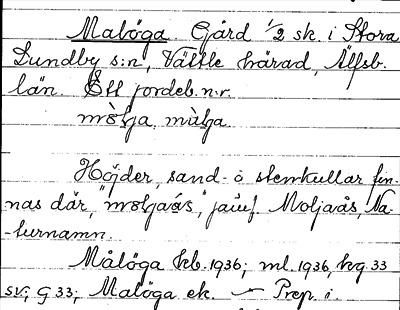 Malöga Gård 1/2 sk. i Stora
Lundby s:n, Vättle härad, Älfsb.
län. Ett jordeb.n.r.
Höjder, sand- o stenkullar fin-
nas där, jämf. Moljaås, Na-
turnamn.
Målöga kb. 1936; ml. 1936, kvg 33
sv; G 33; Malöga ek. — Prep i.